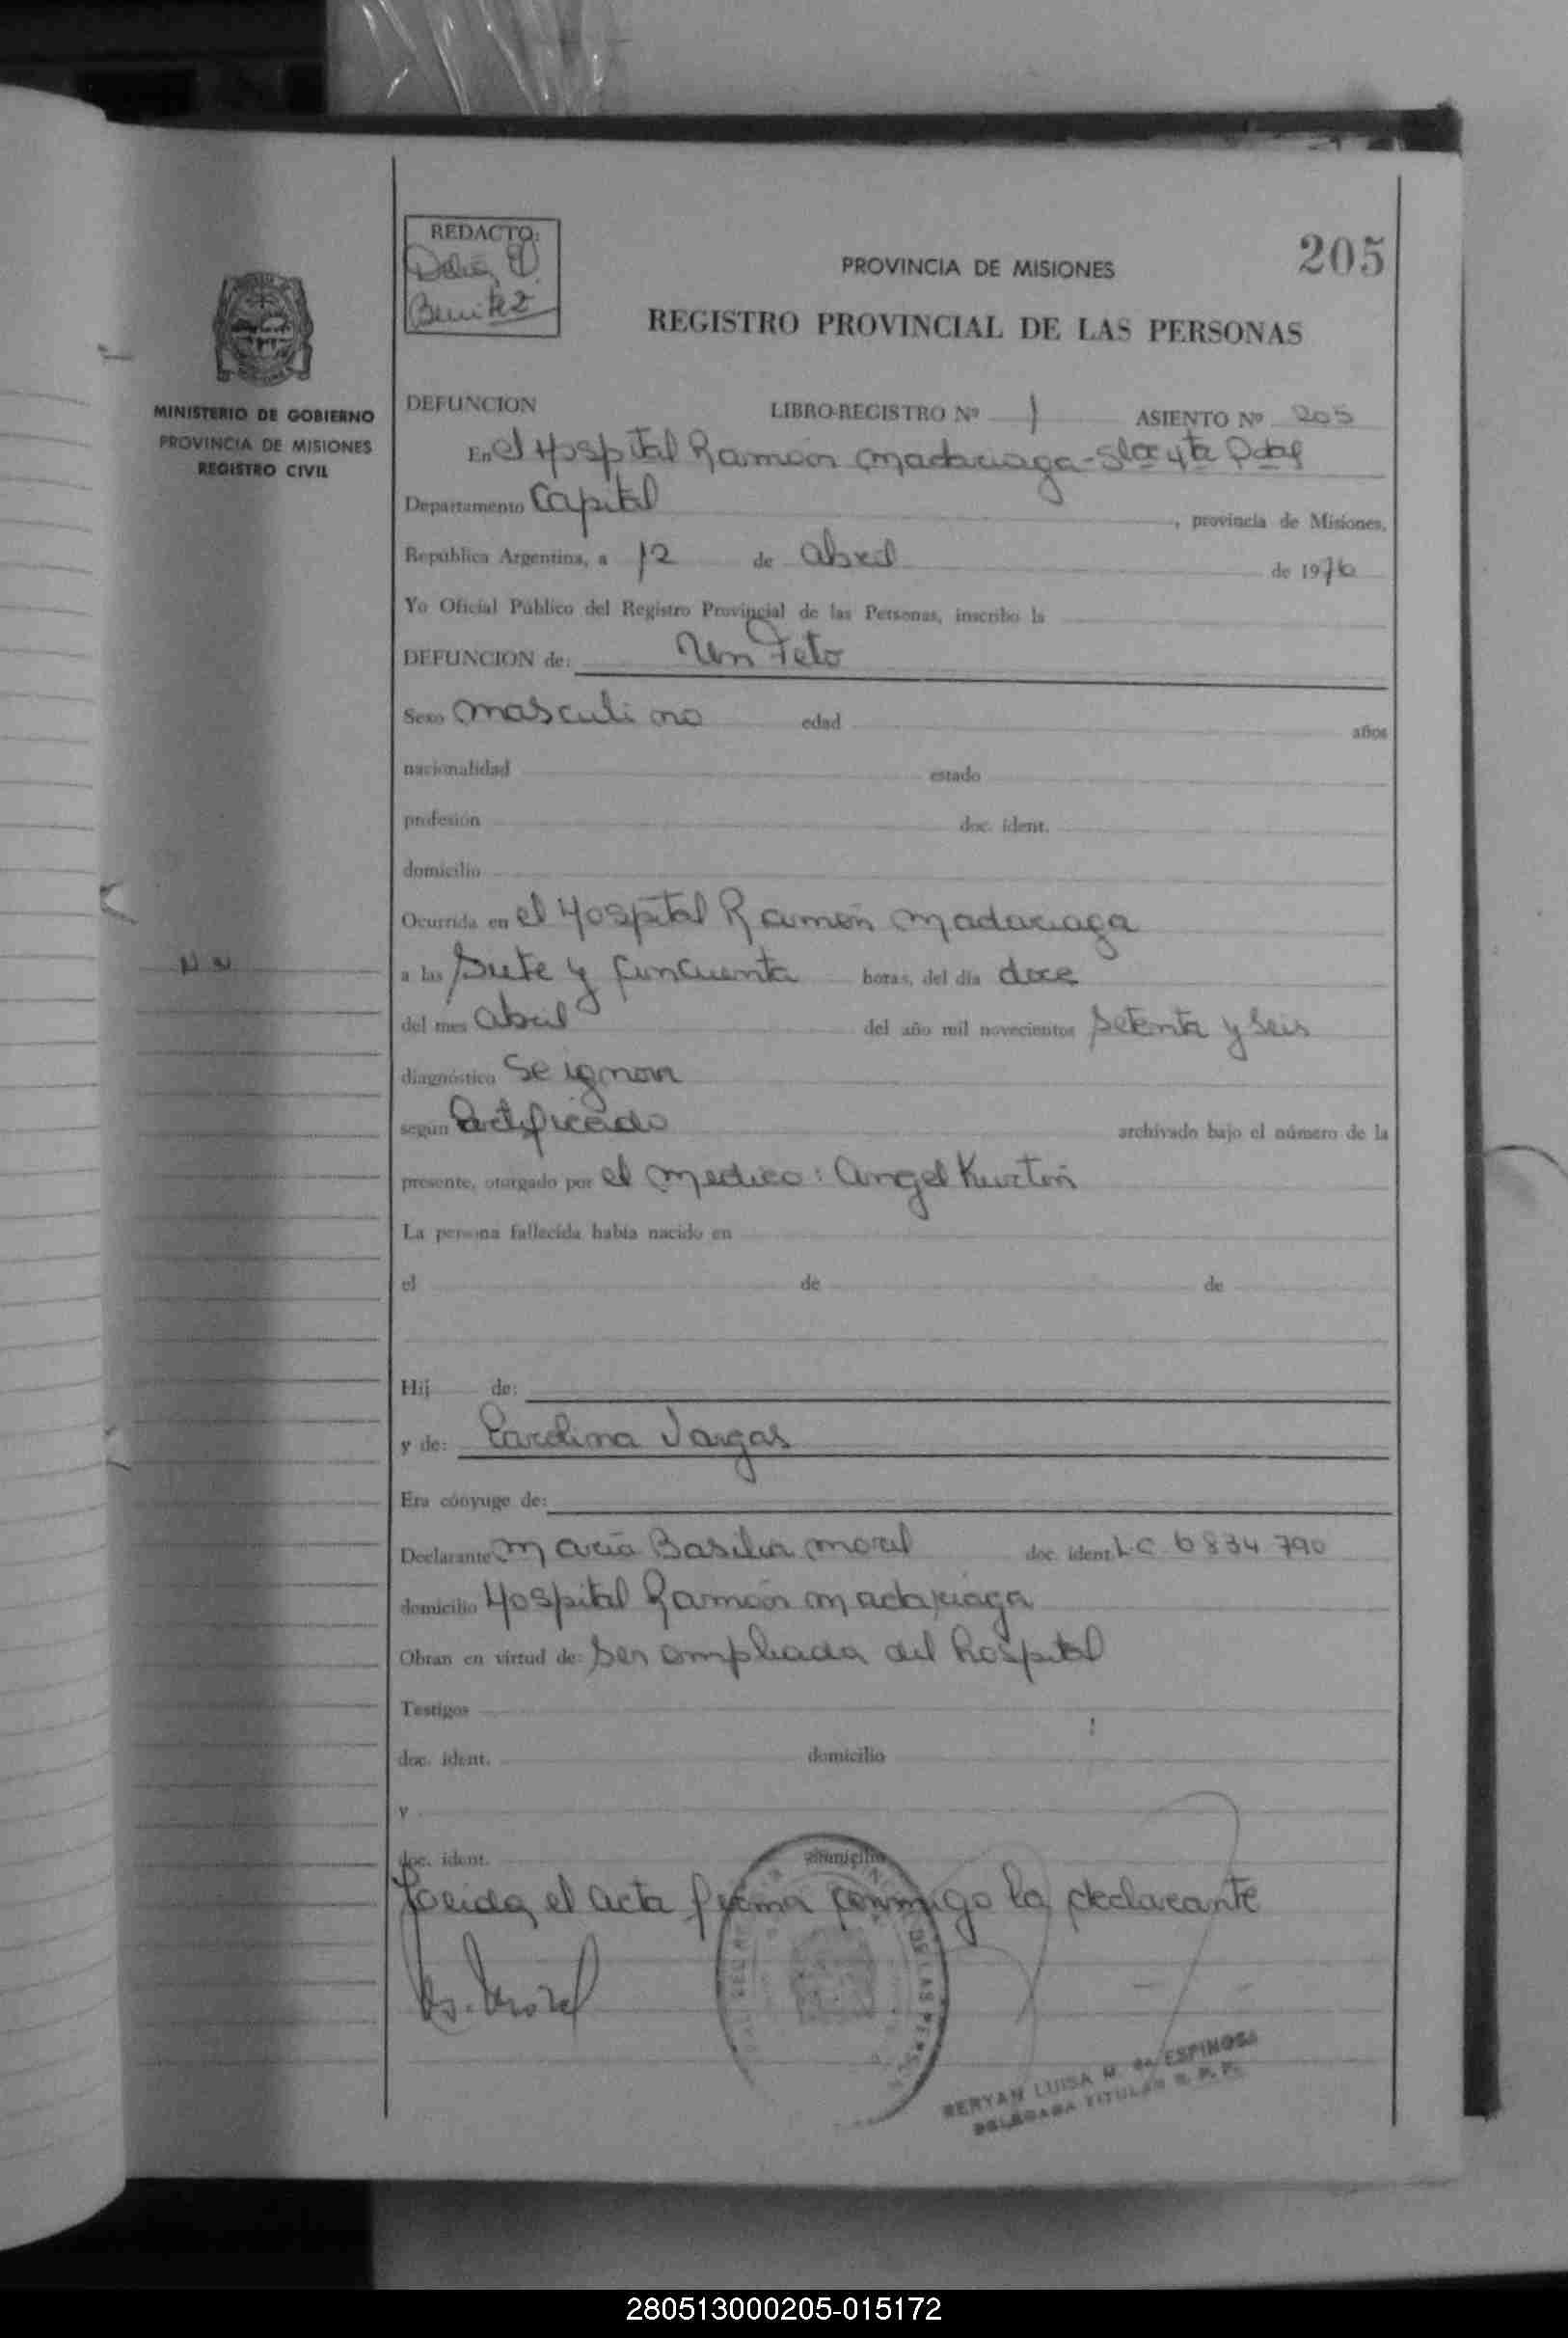 REDACTO:
Benitez
205
PROVINCIA DE MISIONES
REGISTRO PROVINCIAL DE LAS PERSONAS
MINISTERIO DE GOBIERNO
PROVINCIA DE MISIONES
REGISTRO CIVIL
DEFUNCION LIBRO-REGISTRO Nº 1 ASIENTO Nº 205
En el Hospital Ramón Madariaga
Departamento Capital, provincia de Misiones,
República Argentina, a 12 de abril de 1976
Yo Oficial Público del Registro Provincial de las Personas, inscribo la
DEFUNCION de: Un Feto
Sexo masculino edad años
nacionalidad estado
profesión doc. ident.
domicilio
Ocurrida en el Hospital Ramón Madariaga
N N
a las Siete y cincuenta horas, del día doce
del mes abril del año mil novecientos setenta y seis
diagnóstico se ignora
según certificado archivado bajo el número de la
presente, otorgado por el medico: Angel
La persona fallecida había nacido en
el de de
Hij de:
y de: Carolina Vargas
Era cónyuge de:
Declarante María Basilia Morel doc. ident. L.C 6834790
domicilio Hospital Ramón Madariaga
Obran en virtud de: ser empleada del hospital
Testigos
doc. ident. domicilio
y
doc. ident. domicilio
Leida el acta firma conmigo la declarante
LUISA M. de ESPINOSA
DELEGADA TITULAR R. P. P.
280513000205-015172